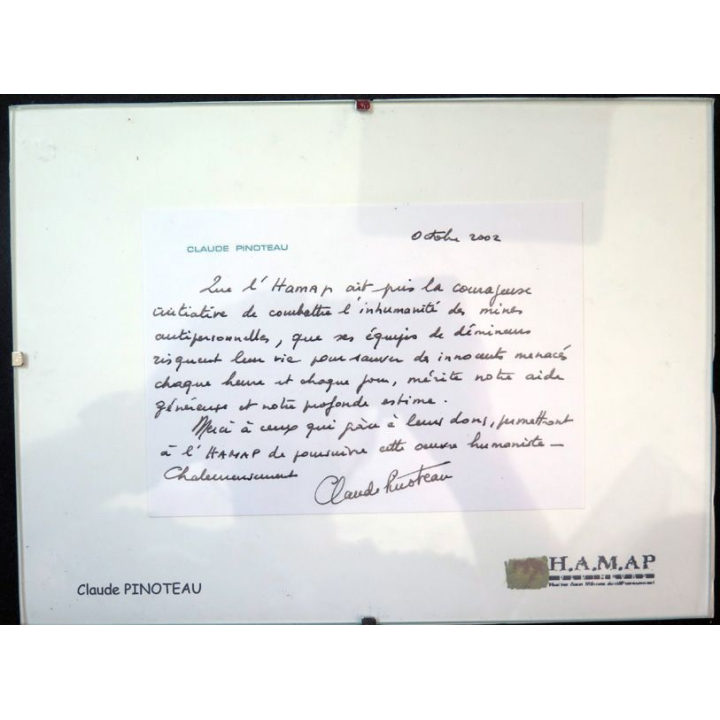 CLAUDE PINOTEAU
Octobre 2002
Que l'HAMAP ait pris la courageuse
initiative de combattre l'inhumanité des mines
antipersonnelles, que ses équipes de démineurs
risquent leur vie pour sauver des innocents menacés
chaque heure et chaque jour, mérite notre aide
généreuse et notre profonde estime.
Merci à ceux qui grâce à leurs dons, permettront
à l'HAMAP de poursuivre cette œuvre humaniste —
Chaleureusement
Claude Pinoteau
H.A.M.AP
Claude PINOTEAU